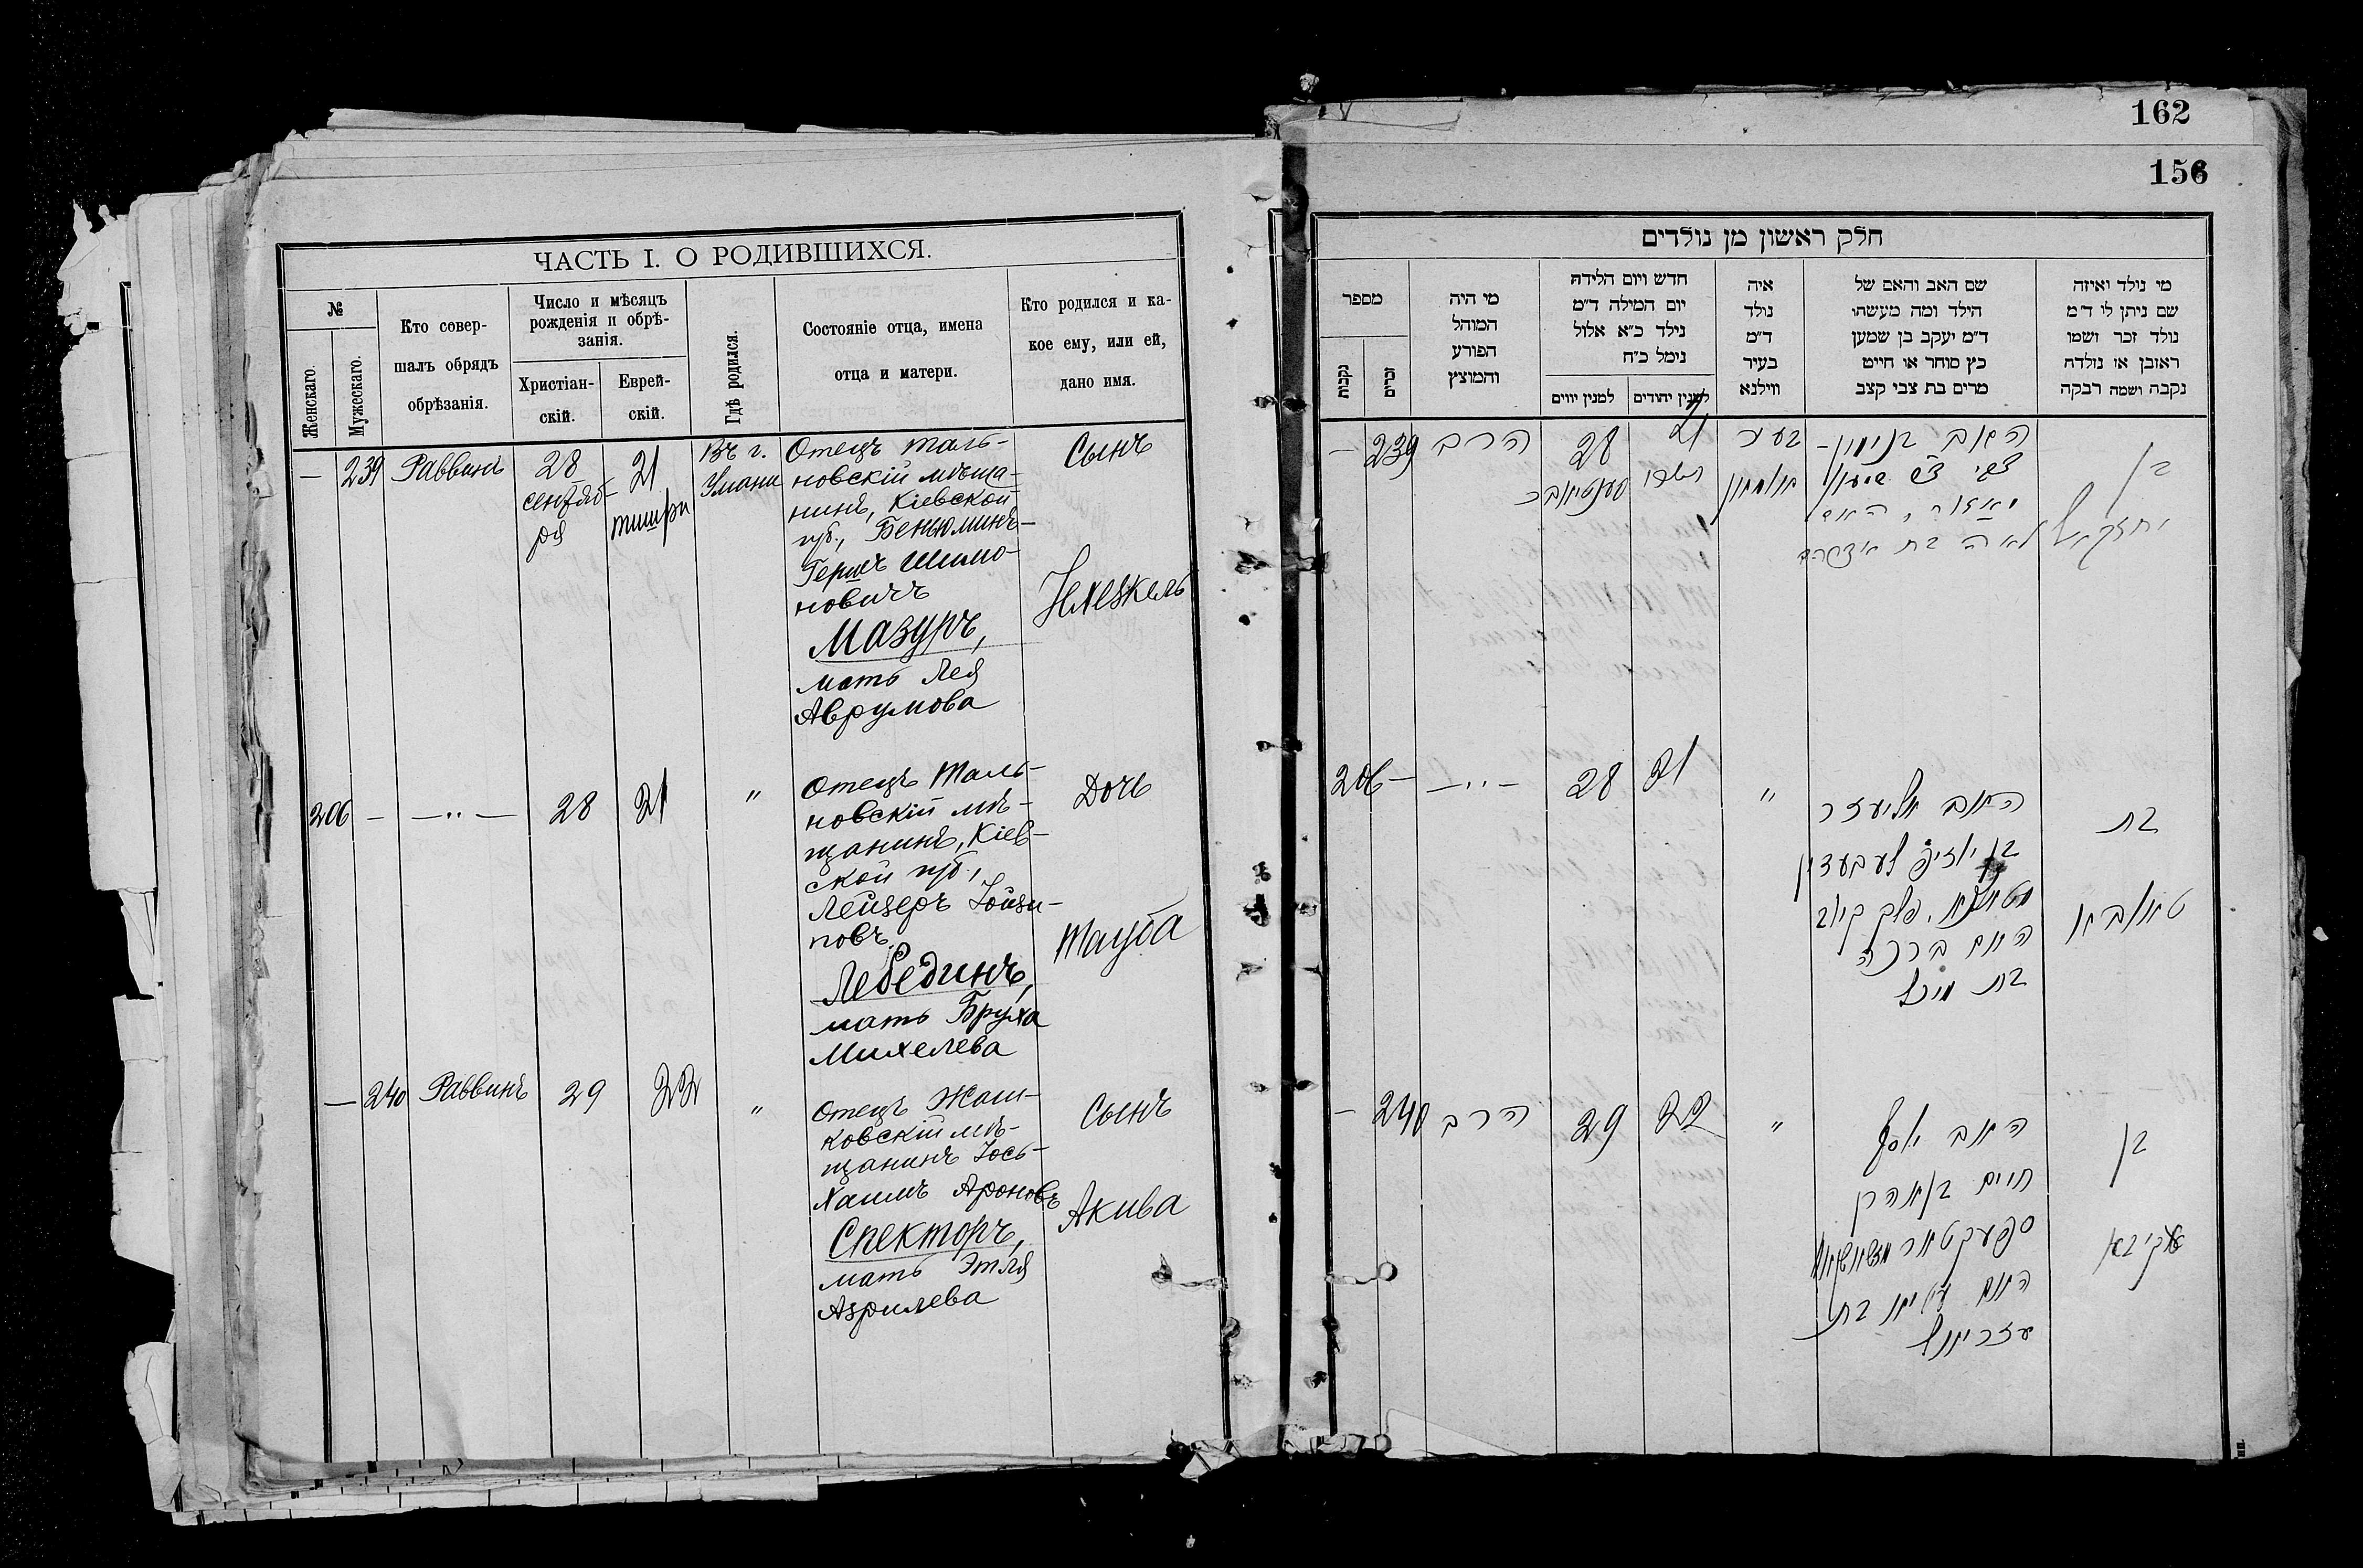 162
156
ЧАСТЬ I. О РОДИВШИХСЯ.
№
Женскаго.
Мужескаго.
Кто совер-
шалъ обрядъ
обрѣзанія.
Число и мѣсяцъ
рожденія и обрѣ-
занія.
Христіан-
скій.
Еврей-
скій.
Гдѣ родился.
Состояніе отца, имена
отца и матери.
Кто родился и ка-
кое ему, или ей,
дано имя.
— 239 Раввинъ
28
сентяб-
ря
21
тишри
Въ г.
Умани
Отецъ таль-
новскій мѣща-
нинъ, Кіевской
губ., Беньюминъ-
Гершъ Шимо-
новичъ
Мазуръ,
мать Лея
Аврумова
Сынъ
206 — —"— 28 21 "
Отецъ Таль-
новскій мѣ-
щанинъ, Кіев-
ской губ.,
Лейзеръ Іойзи-
повъ
Лебединъ,
мать Бруха
Михелева
Дочь
Тауба
— 240 Раввинъ 29 22 "
Отецъ Жаш-
ковскій мѣ-
щанинъ Іось-
Хаимъ Ароновъ
Спекторъ,
мать Этля
Азрилева
Сынъ
Акива
חלק ראשון מן נולדים
מספר
נקבות
זכרים
מי היה
המוהל
הפורע
והמוצץ
חדש ויום הלידה
יום המילה ד״מ
נילד כ״א אלול
נימל כ״ח
למנין יווים
למנין יהודים
איה
נולד
ד״מ
בעיר
ווילנא
שם האב והאם של
הילד ומה מעשהו
ד״מ יעקב בן שמען
כץ סוחר או חייט
מרים בת צבי קצב
מי נולד ואיזה
שם ניתן לו ד״מ
נולד זכר ושמו
ראובן או נולדה
נקבה ושמה רבקה
— 239 הרב
28
21
תשרי
בעיר
האב בנימין-
לאה בת
בן
יחזקאל
206 — —"— 28 21 "
האב אליעזר
בן
האם ברכה
בת מיכל
בת
טאובא
— 240 הרב 29 22 "
האב יוסף
חיים בן אהרן
ספעקטאר
האם
בת
עזריאל
בן
עקיבא